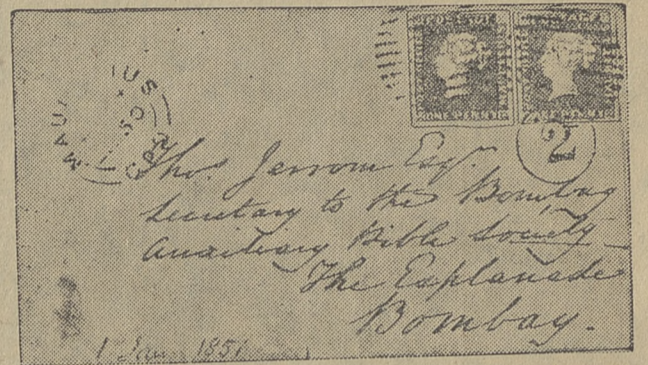 POST OFFICE
ONE PENNY
2
Thos. Jerrom Esqr.
Secretary to the Bombay
Auxiliary Bible Society
The Esplanade
Bombay.
1 Jan 1851